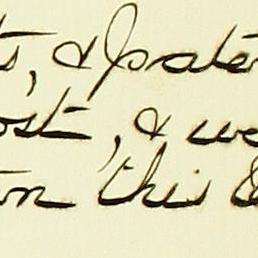 ts, & prate
ost, & we
on this